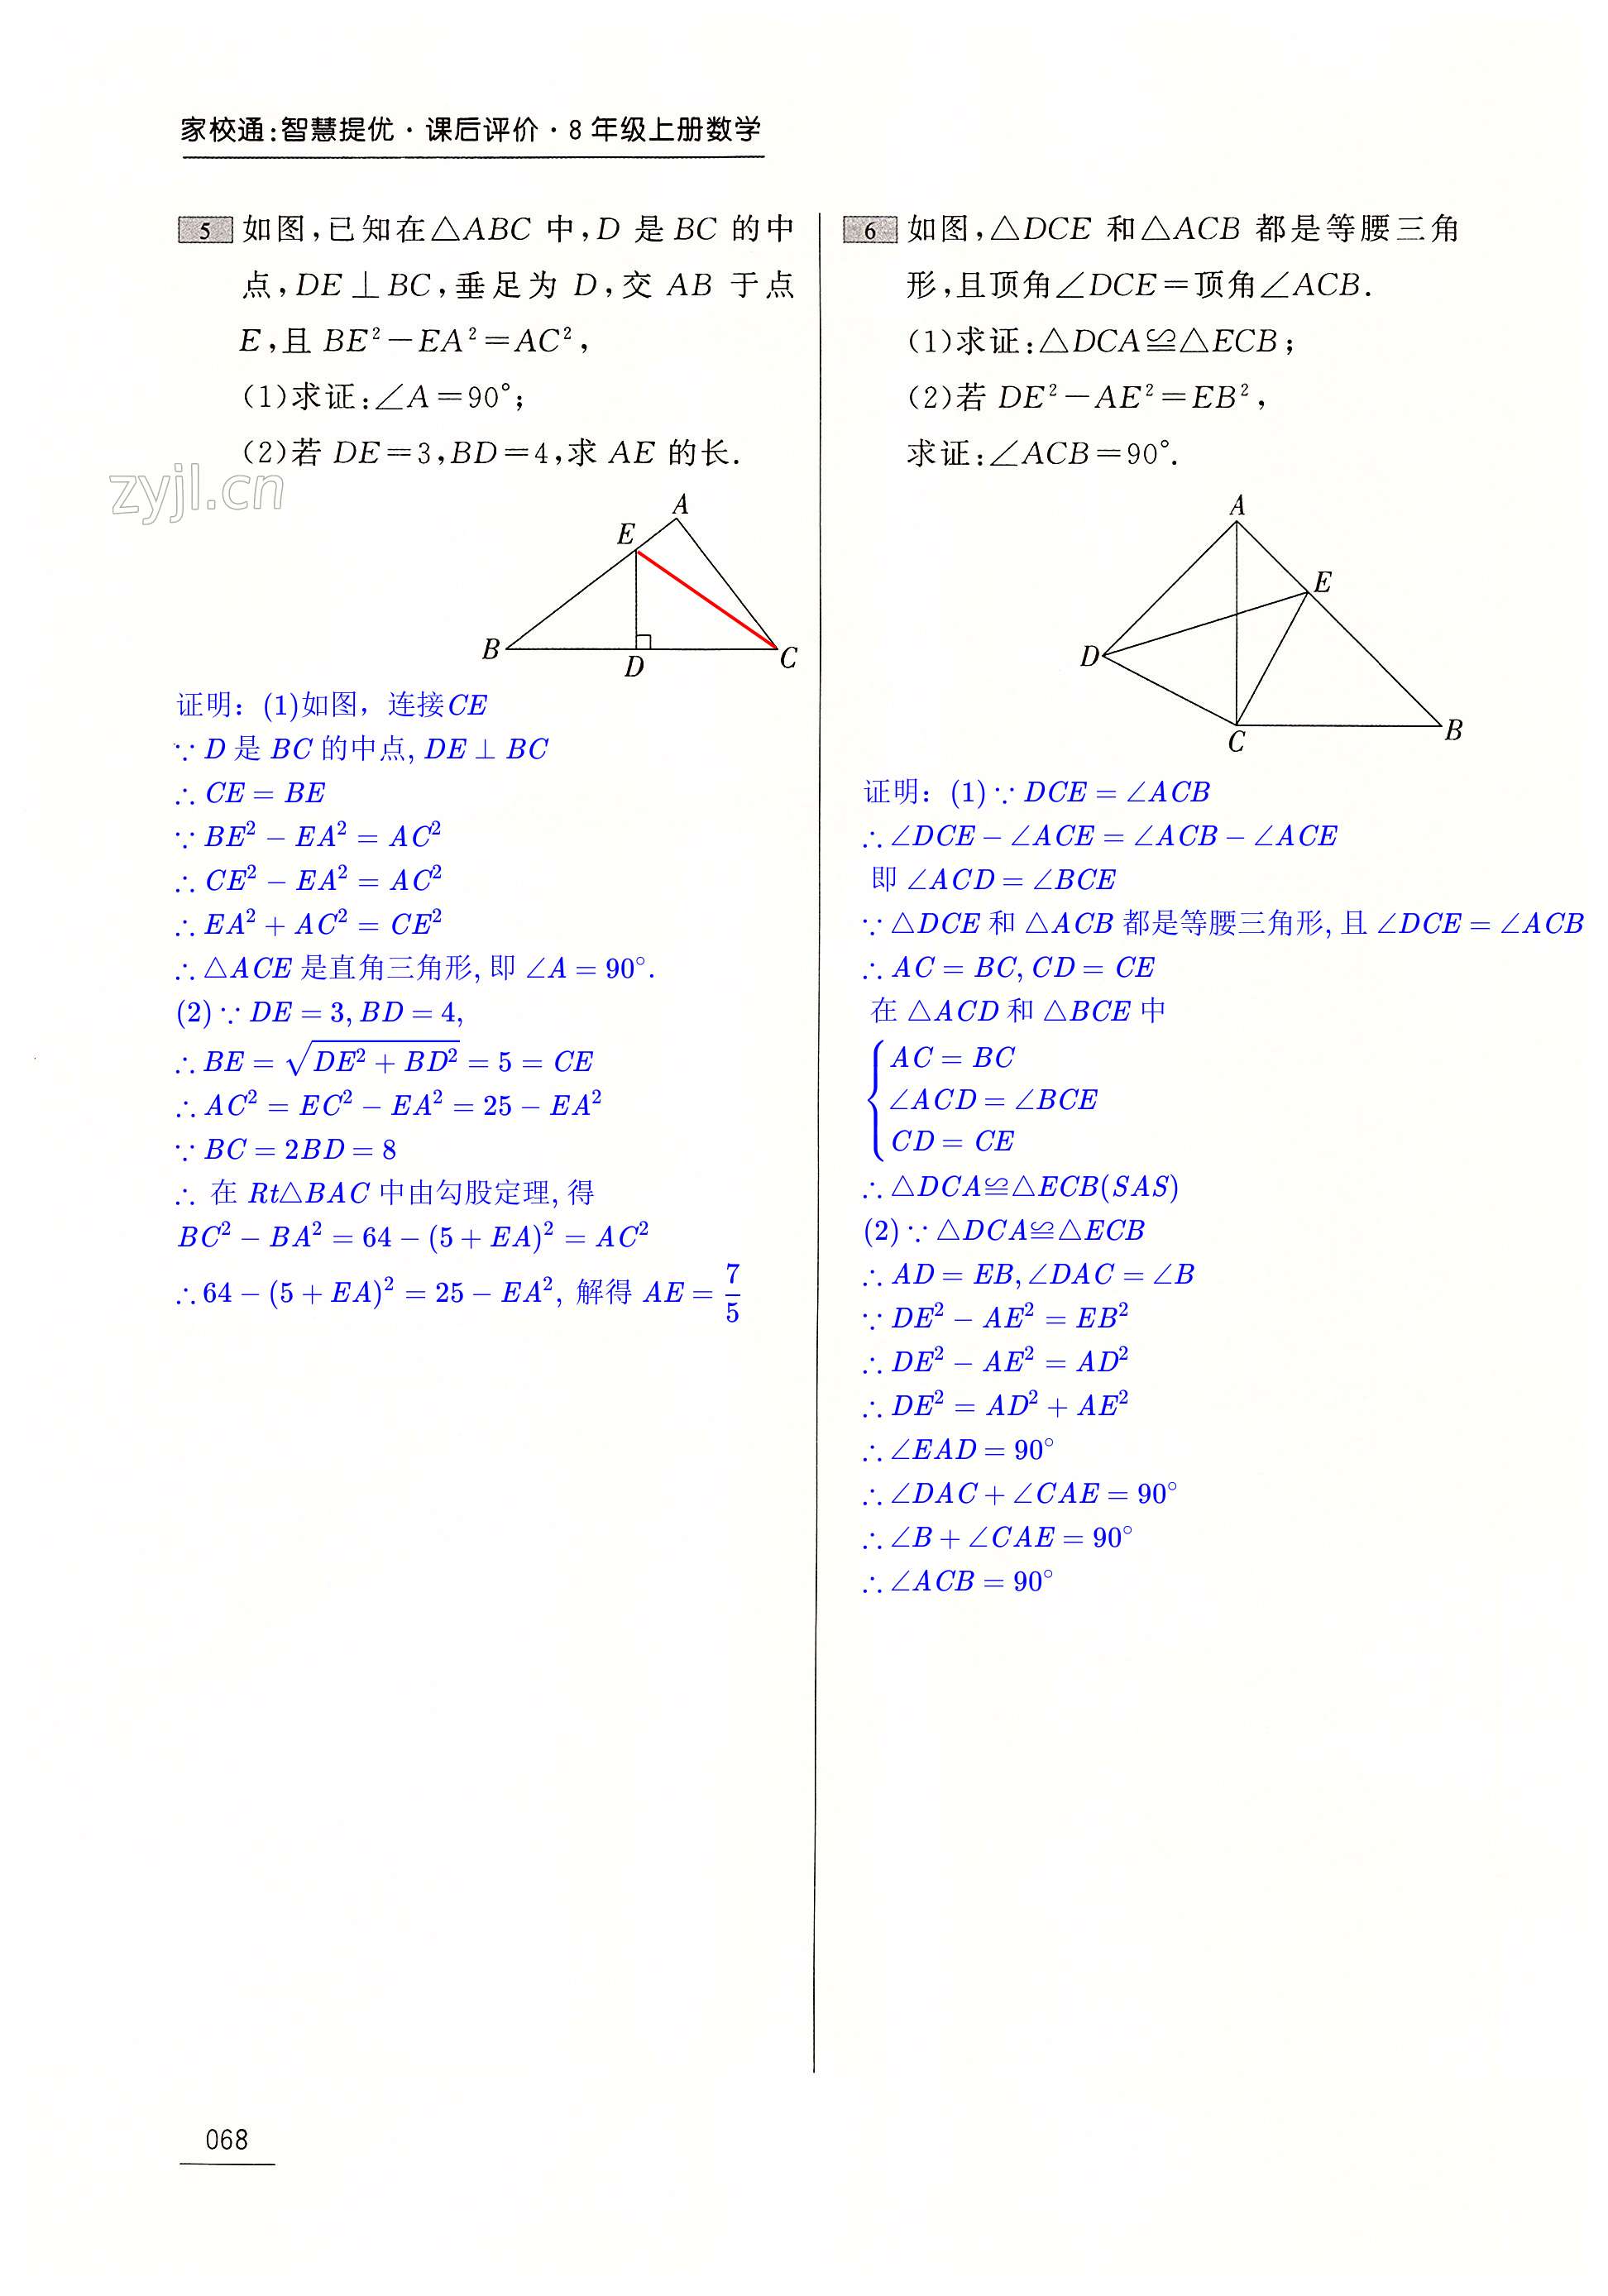 家校通:智慧提优·课后评价·8年级上册数学
5 如图,已知在△ABC 中,D 是 BC 的中
点,DE⊥BC,垂足为 D,交 AB 于点
E,且 BE²-EA²=AC²,
(1)求证:∠A=90°;
(2)若 DE=3,BD=4,求 AE 的长.
zyjl.cn
A
E
B
D
C
证明：(1)如图，连接CE
∵ D 是 BC 的中点, DE ⊥ BC
∴ CE = BE
∵ BE² − EA² = AC²
∴ CE² − EA² = AC²
∴ EA² + AC² = CE²
∴ △ACE 是直角三角形, 即 ∠A = 90°.
(2) ∵ DE = 3, BD = 4,
∴ BE = √(DE² + BD²) = 5 = CE
∴ AC² = EC² − EA² = 25 − EA²
∵ BC = 2BD = 8
∴ 在 Rt△BAC 中由勾股定理, 得
BC² − BA² = 64 − (5 + EA)² = AC²
∴ 64 − (5 + EA)² = 25 − EA², 解得 AE = 7/5
6 如图,△DCE 和△ACB 都是等腰三角
形,且顶角∠DCE=顶角∠ACB.
(1)求证:△DCA≌△ECB;
(2)若 DE²-AE²=EB²,
求证:∠ACB=90°.
A
E
D
C
B
证明：(1) ∵ DCE = ∠ACB
∴ ∠DCE − ∠ACE = ∠ACB − ∠ACE
即 ∠ACD = ∠BCE
∵ △DCE 和 △ACB 都是等腰三角形, 且 ∠DCE = ∠ACB
∴ AC = BC, CD = CE
在 △ACD 和 △BCE 中
AC = BC
∠ACD = ∠BCE
CD = CE
∴ △DCA≌△ECB(SAS)
(2) ∵ △DCA≌△ECB
∴ AD = EB, ∠DAC = ∠B
∵ DE² − AE² = EB²
∴ DE² − AE² = AD²
∴ DE² = AD² + AE²
∴ ∠EAD = 90°
∴ ∠DAC + ∠CAE = 90°
∴ ∠B + ∠CAE = 90°
∴ ∠ACB = 90°
068